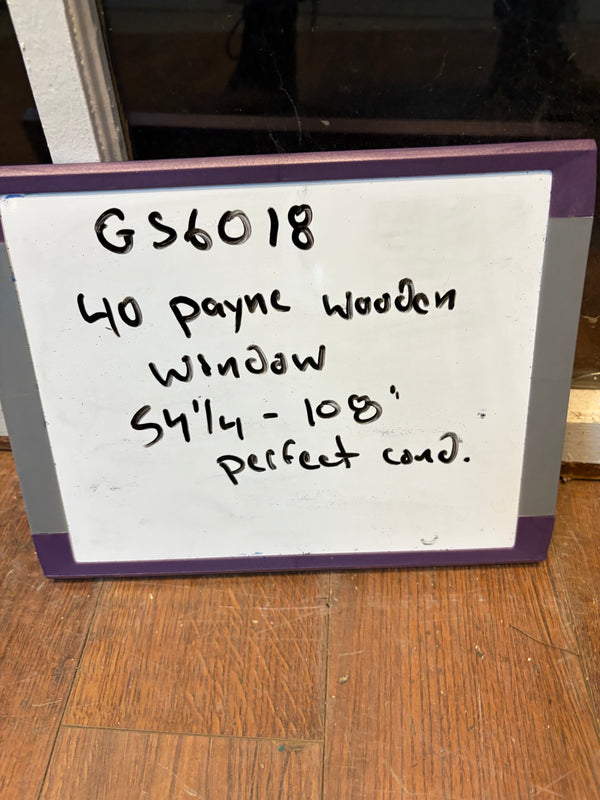 GS6018
40 payne wooden
window
54'1/4 - 108'
perfect cond.